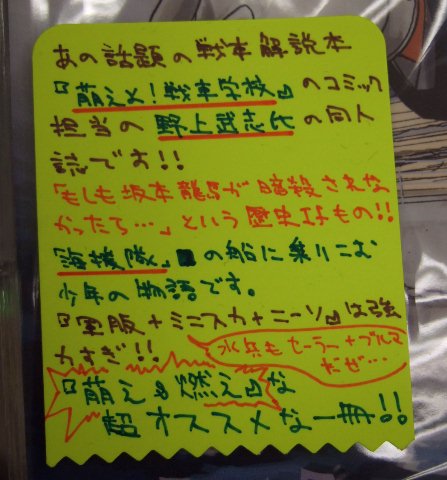 あの話題の戦車解説本
『萌えよ!戦車学校』のコミック
担当の野上武志氏の同人
誌です!!
「もしも坂本龍馬が暗殺されな
かったら…」という歴史IFもの!!
「海援隊」の船に乗りこむ
少年の物語です。
『軍服+ミニスカ+ニーソ』は強
力すぎ!!
水兵もセーラー+ブルマ
だぜ…
『萌え&燃え』な
超オススメな一冊!!